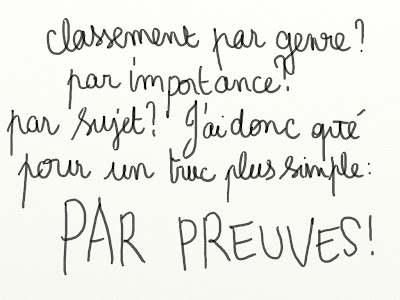 classement par genre?
par importance?
par sujet? J'ai donc opté
pour un truc plus simple:
PAR PREUVES!